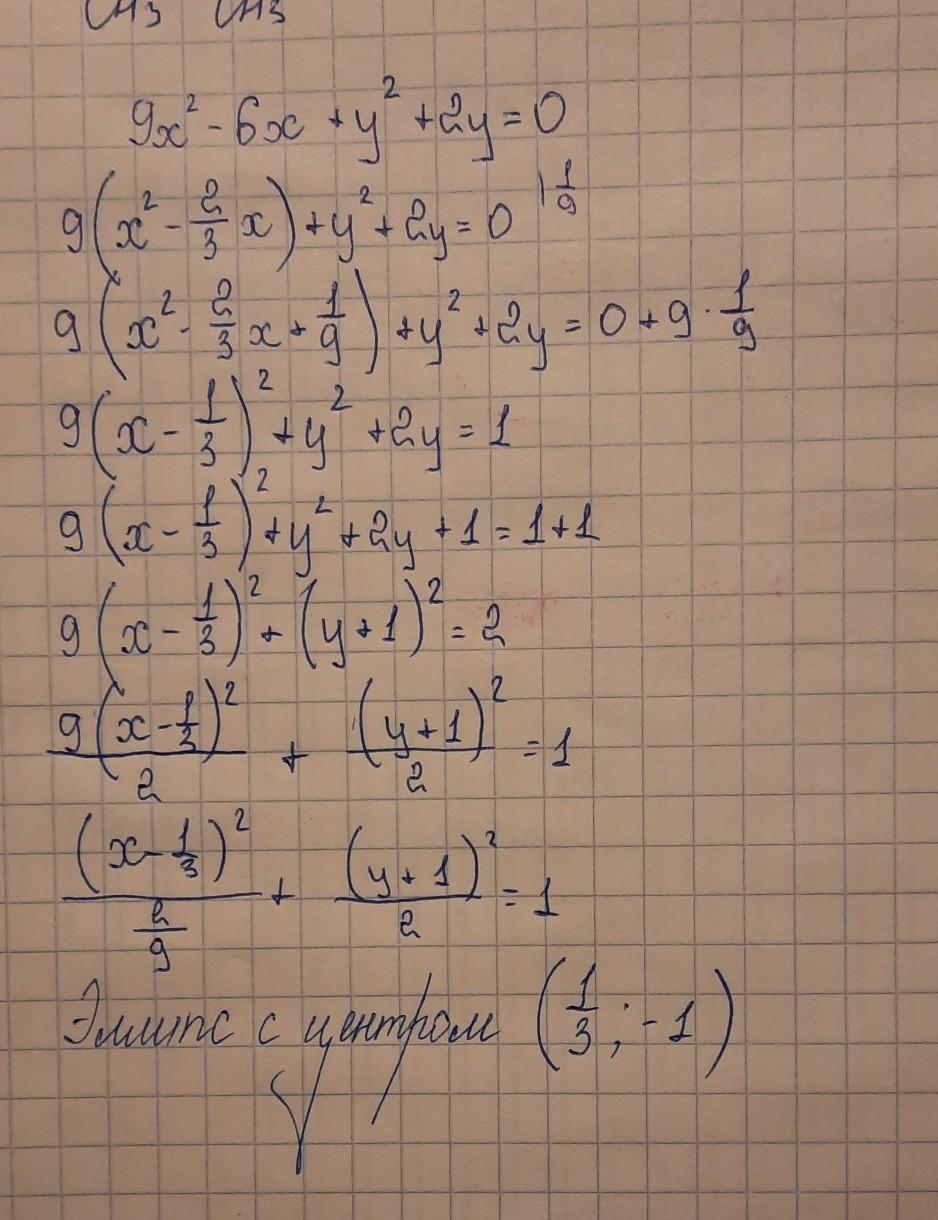 CH3 CH3
9x² - 6x + y² + 2y = 0
9(x² - 2/3 x) + y² + 2y = 0 | 1/9
9(x² - 2/3 x + 1/9) + y² + 2y = 0 + 9 · 1/9
9(x - 1/3)² + y² + 2y = 1
9(x - 1/3)² + y² + 2y + 1 = 1 + 1
9(x - 1/3)² + (y + 1)² = 2
9(x - 1/3)²/2 + (y + 1)²/2 = 1
(x - 1/3)²/(2/9) + (y + 1)²/2 = 1
Эллипс с центром (1/3; -1)